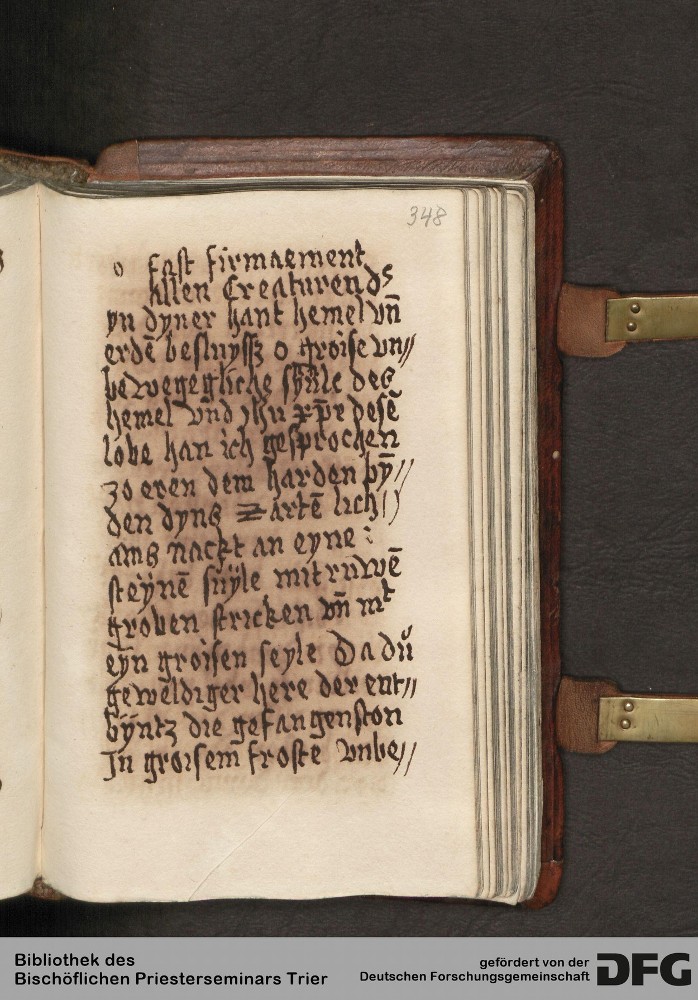 348
o fast firmaement
Allen Creaturen ds
yn dyner hant hemel vn̄
erdē besluyssz o groise vn//
bewegegliche sÿule des
hemel vnd jhu xp̄e desē
lobe han ich gesprochen
zo eren dem harden bȳ//
den dyns zartē lich//
ams nackt an eyne :
steÿnē suÿle mit ruwē
groben stricken vn̄ mt
eyn groisen seyle Da du
geweldiger here der ent//
bÿntz die gefangen ston
In groisem froste vnbe//
Bibliothek des
Bischöflichen Priesterseminars Trier
gefördert von der
Deutschen Forschungsgemeinschaft
DFG